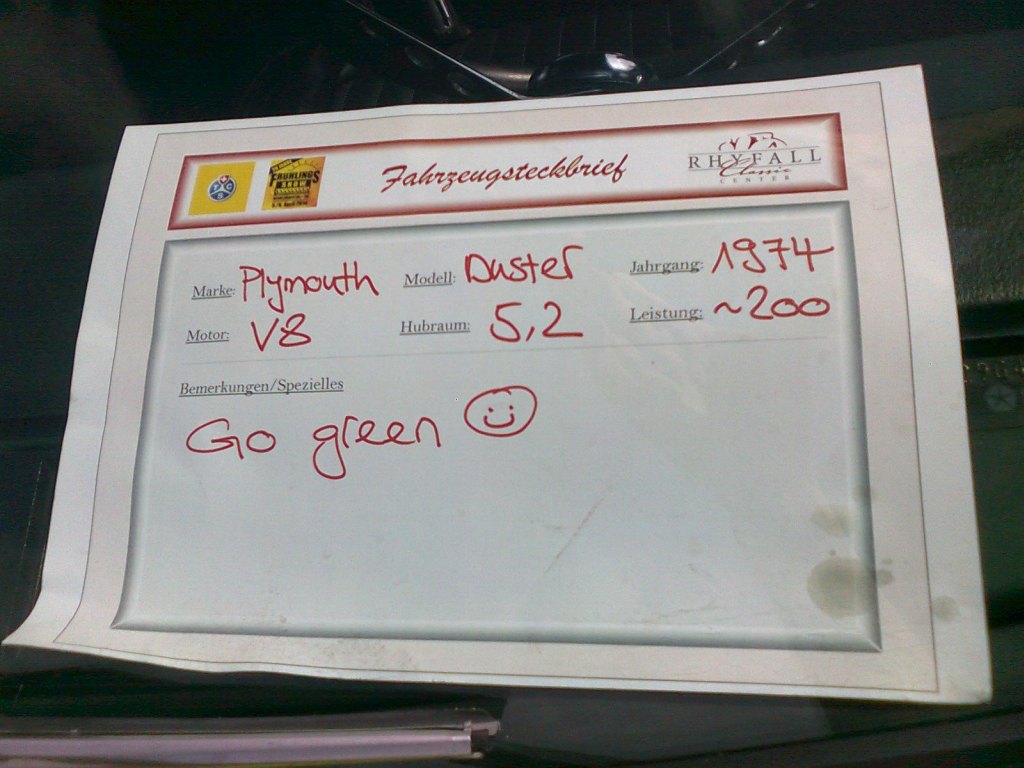 TCS
FRÜHLINGS
SHOW
Fahrzeugsteckbrief
RHYFALL
Classic
CENTER
Marke: Plymouth Modell: Duster Jahrgang: 1974
Motor: V8 Hubraum: 5,2 Leistung: ~200
Bemerkungen/Spezielles
Go green